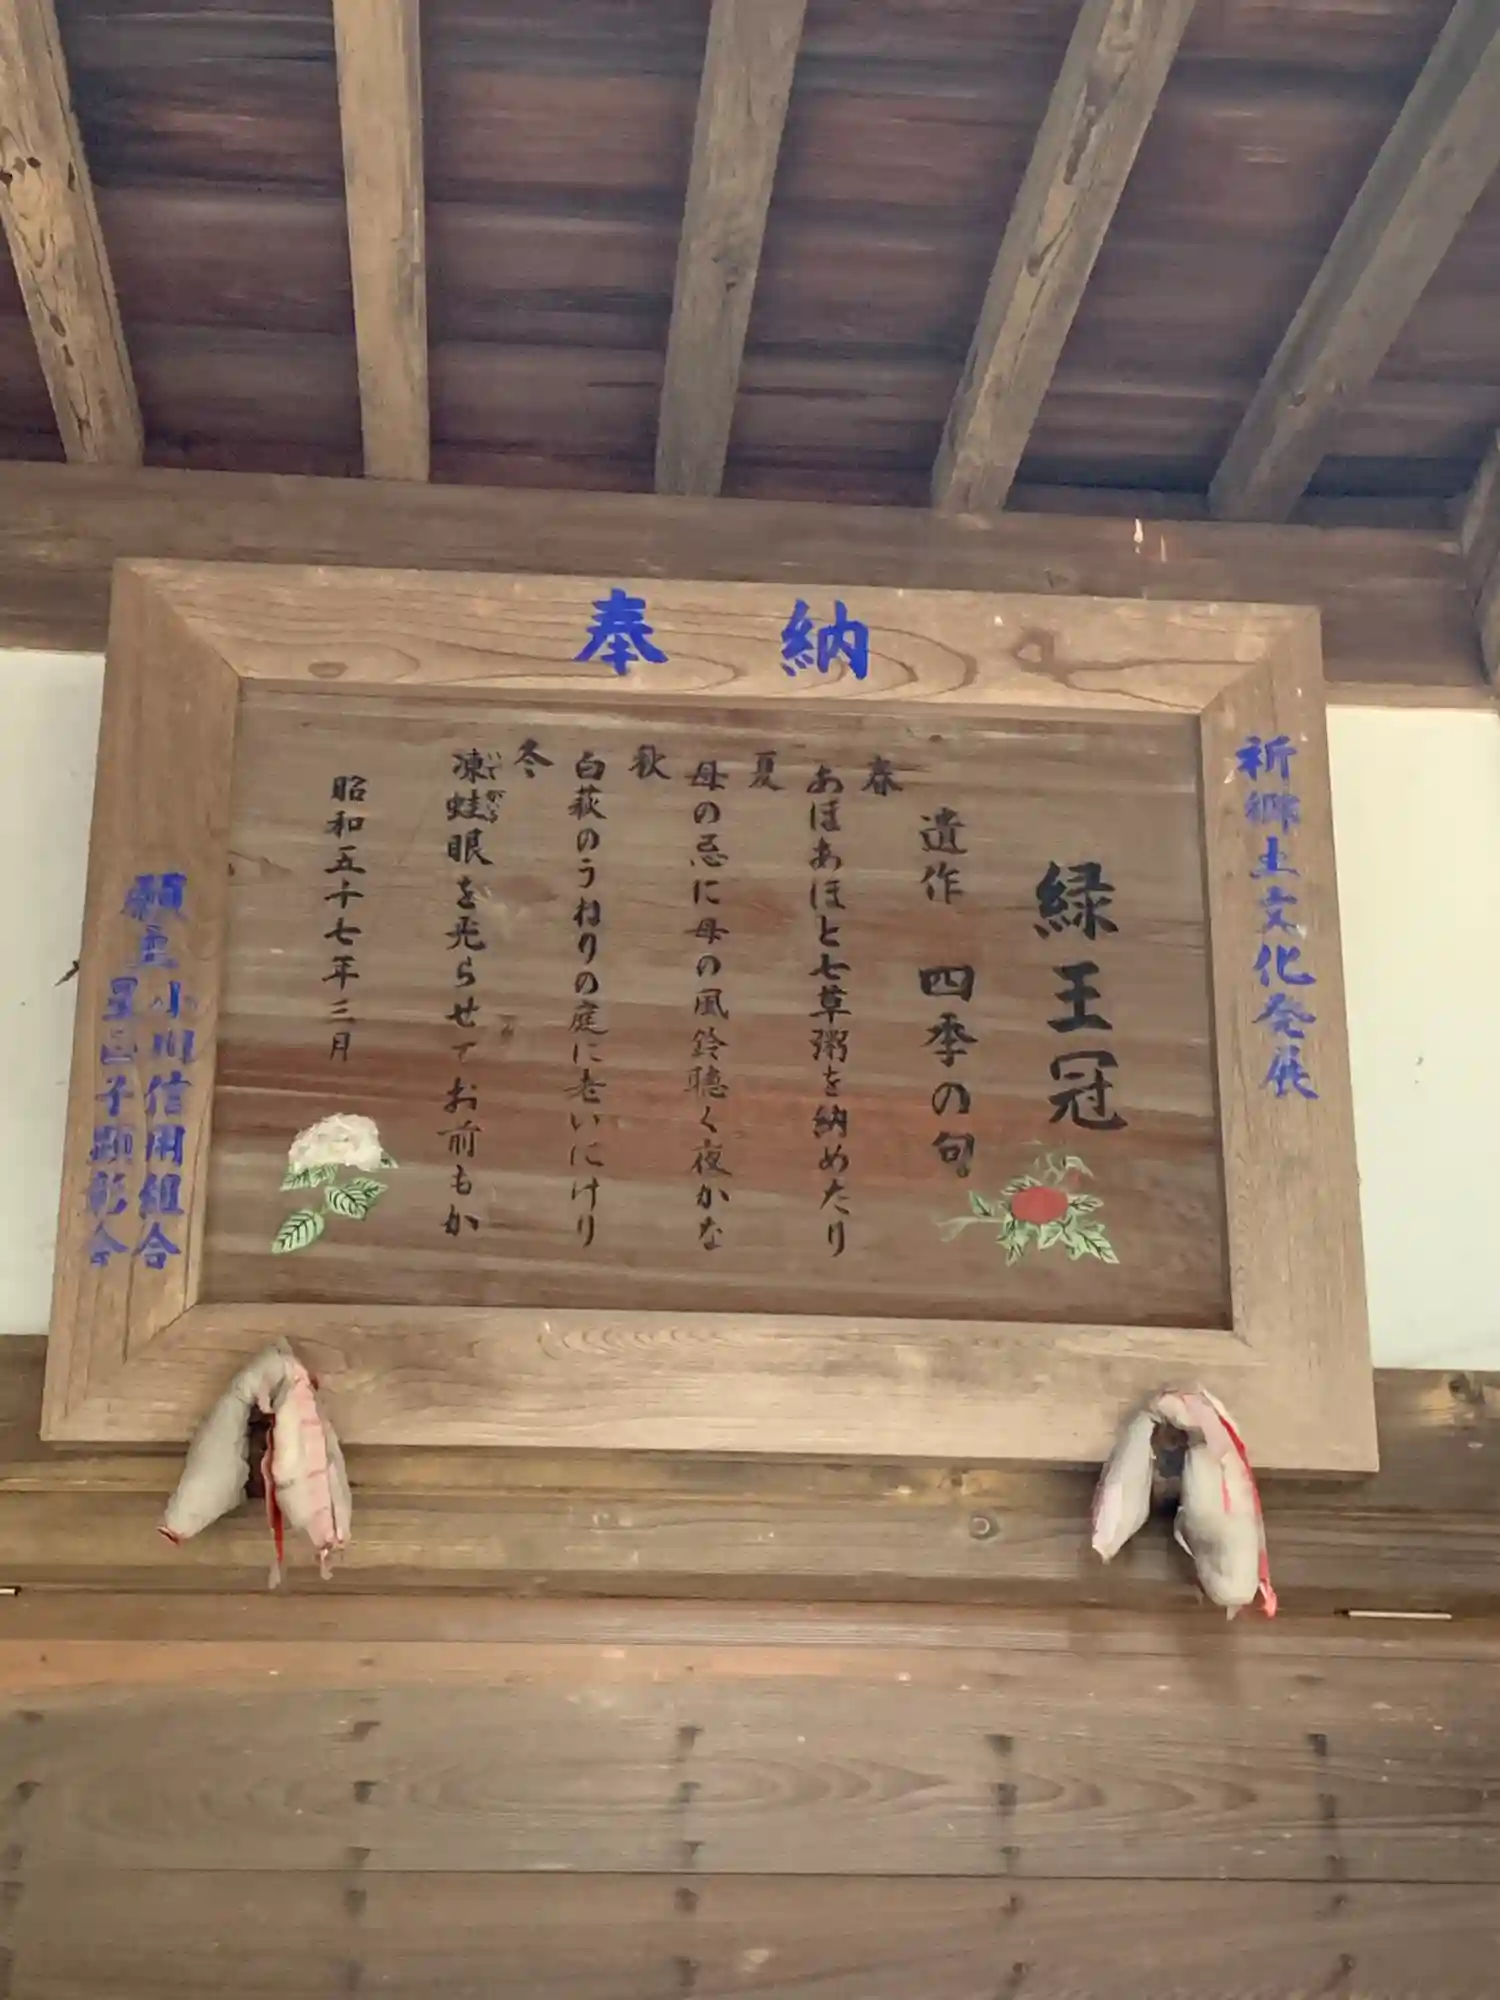 奉納
祈郷土文化発展
緑王冠
遺作 四季の句
春
あほあほと七草粥を納めたり
夏
母の忌に母の風鈴聴く夜かな
秋
白萩のうねりの庭に老いにけり
冬
凍蛙眼を光らせてお前もか
いてがへる
昭和五十七年三月
願主 小川信用組合
星
子顕彰会